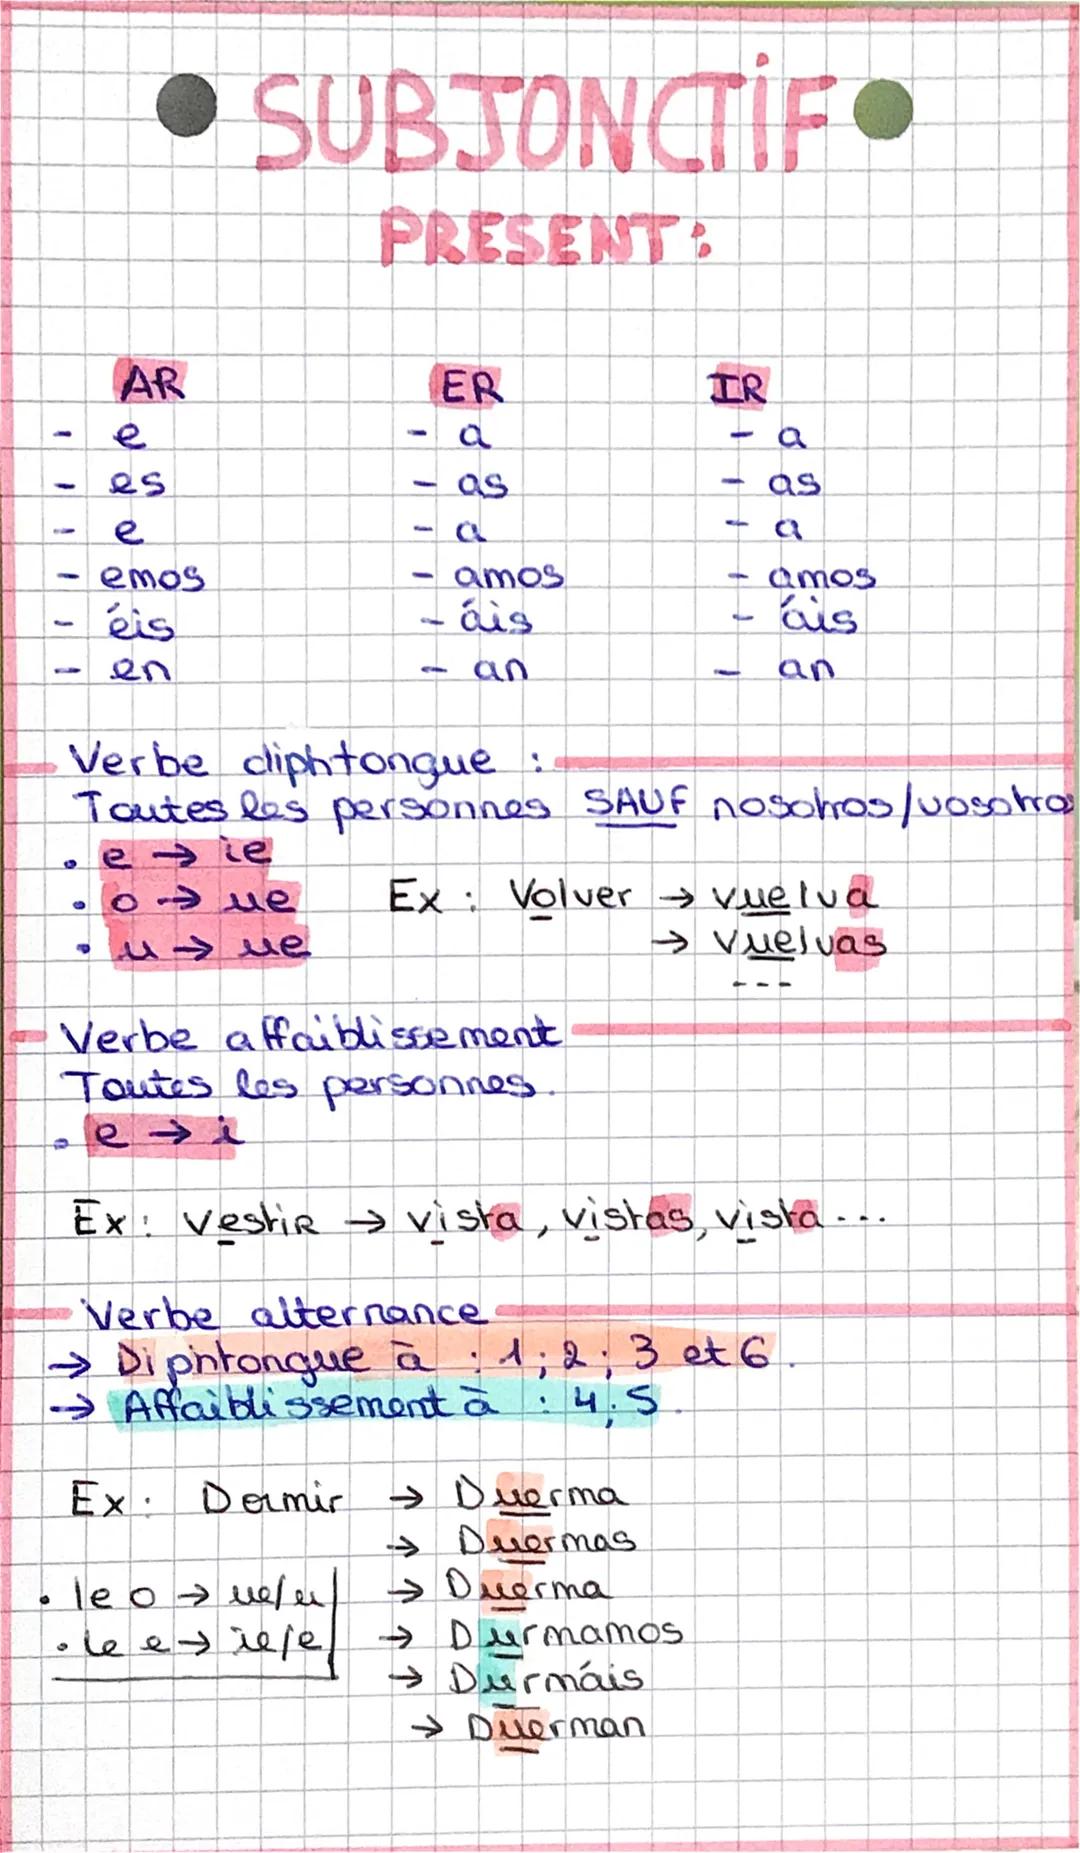 SUBJONCTIF
PRESENT:
AR ER IR
- e - a - a
- es - as - as
- e - a - a
- emos - amos - amos
- éis - áis - áis
- en - an - an
Verbe diphtongue :
Toutes les personnes SAUF nosotros/vosotros
• e → ie
• o → ue Ex : Volver → vuelva
• u → ue → vuelvas
---
Verbe affaiblissement
Toutes les personnes.
• e → i
Ex : vestir → vista, vistas, vista...
Verbe alternance
→ Diphtongue à : 1; 2; 3 et 6.
→ Affaiblissement à : 4; 5.
Ex : Dormir → Duerma
→ Duermas
• le o → ue/u → Duerma
• le e → ie/e → Durmamos
→ Durmáis
→ Duerman